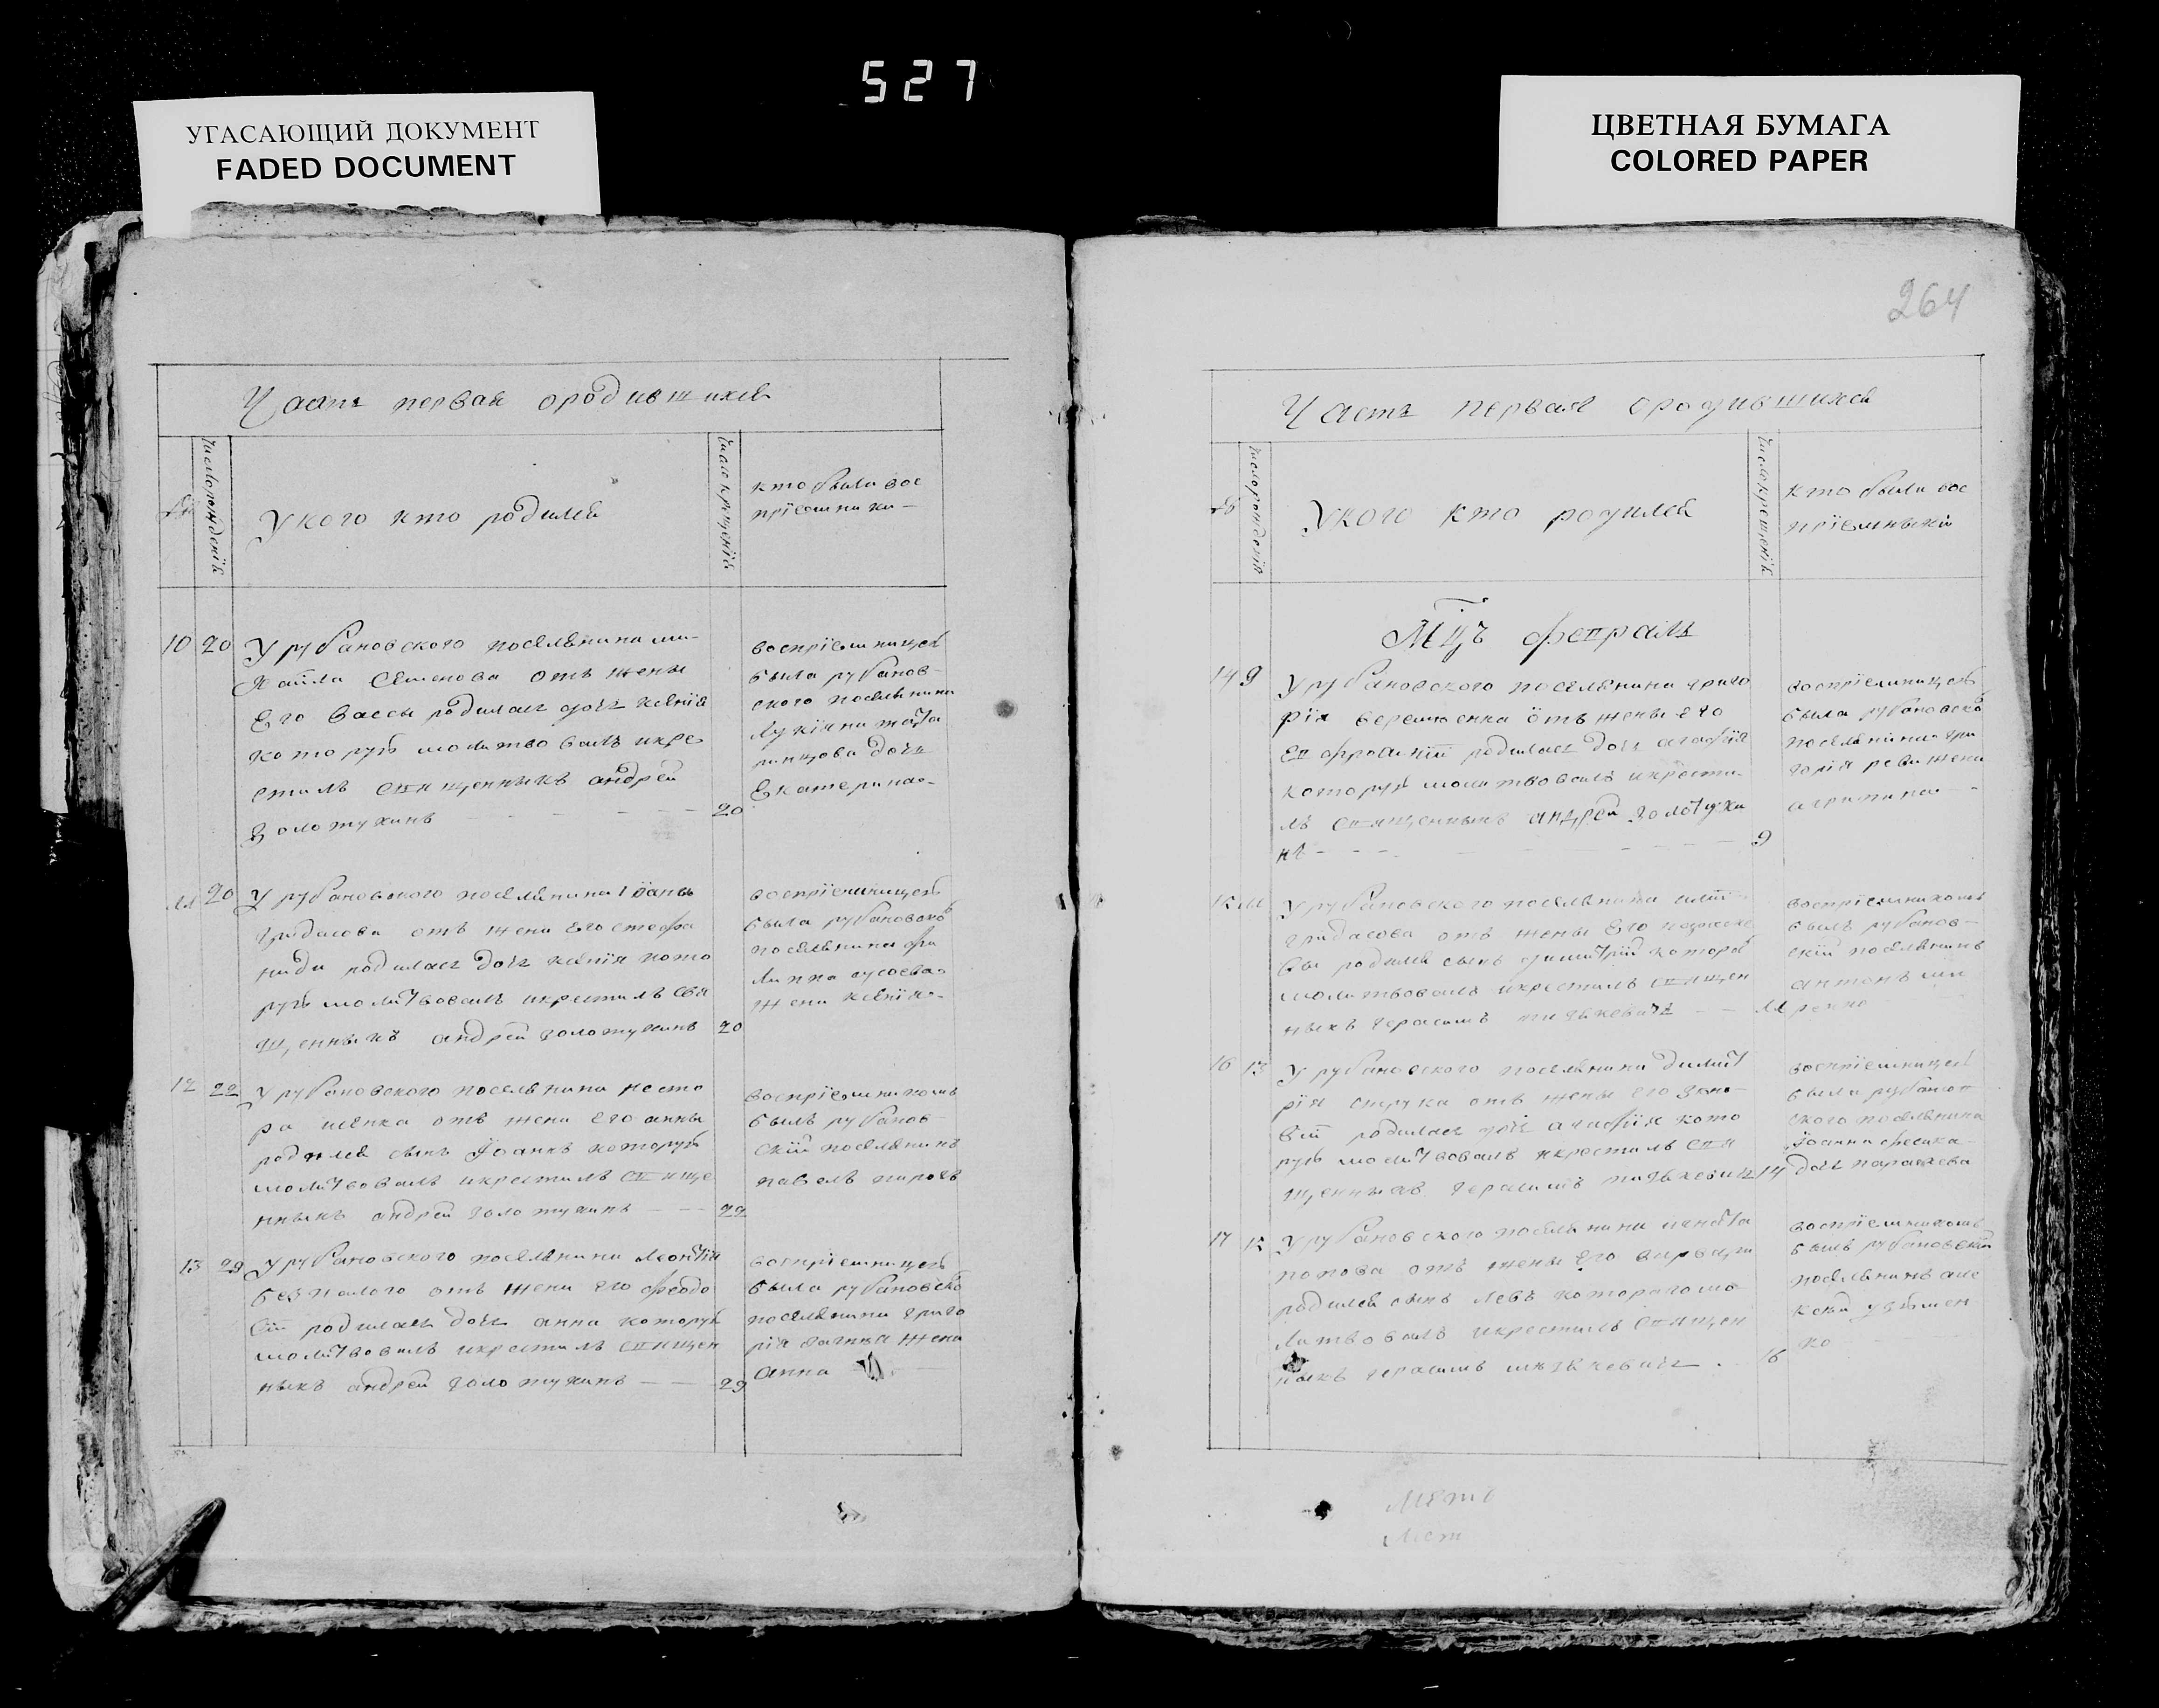 527
УГАСАЮЩИЙ ДОКУМЕНТ
FADED DOCUMENT
ЦВЕТНАЯ БУМАГА
COLORED PAPER
Часть первая ородившихся
№
число рождения
Укого кто родился
число крещения
кто были вос
приемники
10 20
У рубановского поселянина ми-
хайла Семенова отъ жены
Его вассы родилась дочь ксения
которую молитвовалъ икре
стилъ священникъ андрей
золотухинъ
20
восприемницею
была рубанов-
ского поселянина
дочь
Екатерина
11 20
У рубановского поселянина Iоанна
гридасова отъ жени Его стефа
ниди родилась дочь ксенiя кото
рую молитвовалъ икрестилъ свя
щенникъ андрей золотухинъ
20
восприемницею
была рубановско
поселянина фи
липпа
жена ксения
12 22
У рубановского поселянина несто
ра отъ жени Его анны
родился сынъ Iоаннъ которую
молитвовалъ икрестилъ свяще
нникъ андрей золотухинъ
22
восприемникомъ
былъ рубанов-
скiй поселянинъ
павелъ
13 29
У рубановского поселянина леонтiя
безпалого отъ жени его феодо
сiи родилась дочь анна которую
молитвовалъ икрестилъ священ
никъ андрей золотухинъ
29
восприемницею
была рубановско
поселянина григо
рiя жена
анна
264
Часть первая ородившихся
№
число рождения
Укого кто родился
число крещенiя
кто были вос
прiемники
Мцъ февраль
14 9
У рубановского поселянина григо
рiя отъ жены его
евфросинiи родилась дочь агафiя
которую молитвовалъ икрести-
лъ священникъ андрей золотухи
нъ
9
воспрiемницею
была рубановско
поселянина гри
горiя жена
агрипина
15 11
У рубановского поселянина
гридасова отъ жены Его
родился сынъ димитрiй которо
молитвовалъ икрестилъ священ
никъ герасимъ
11
воспрiемникомъ
былъ рубанов-
скiй поселянинъ
антонъ
16 13
У рубановского поселянина димит
рiя струка отъ жены его зено
вiи родилась дочь агафiя кото
рую молитвовалъ икрестилъ свя
щенникъ герасимъ
14
воспрiемницею
была рубанов
ского поселянина
Iоанна
дочь параскева
17 15
У рубановского поселянина игната
попова отъ жены Его варвари
родился сынъ левъ которагомо
литвовалъ икрестилъ священ
никъ герасимъ
16
воспрiемникомъ
былъ рубановскiй
поселянинъ але
ксей
ко